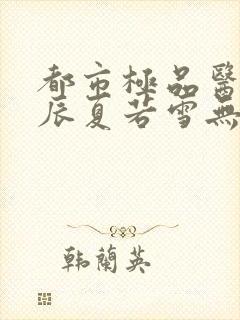 都市極品醫
辰夏若雪無
韩蘭英